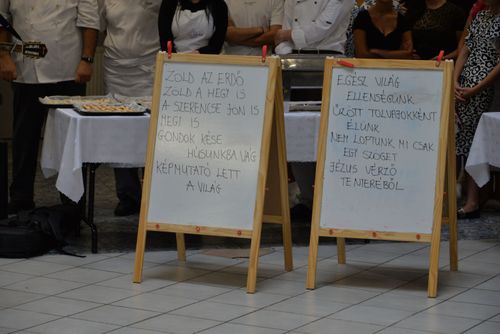 ZÖLD AZ ERDŐ
ZÖLD A HEGY IS
A SZERENCSE JÖN IS
MEGY IS
GONDOK KÉSE
HÚSUNKBA VÁG
KÉPMUTATÓ LETT
A VILÁG
EGÉSZ VILÁG
ELLENSÉGÜNK
ŰZÖTT TOLVAJOKKÉNT
ÉLÜNK
NEM LOPTUNK MI CSAK
EGY SZÖGET
JÉZUS VÉRZŐ
TENYERÉBŐL